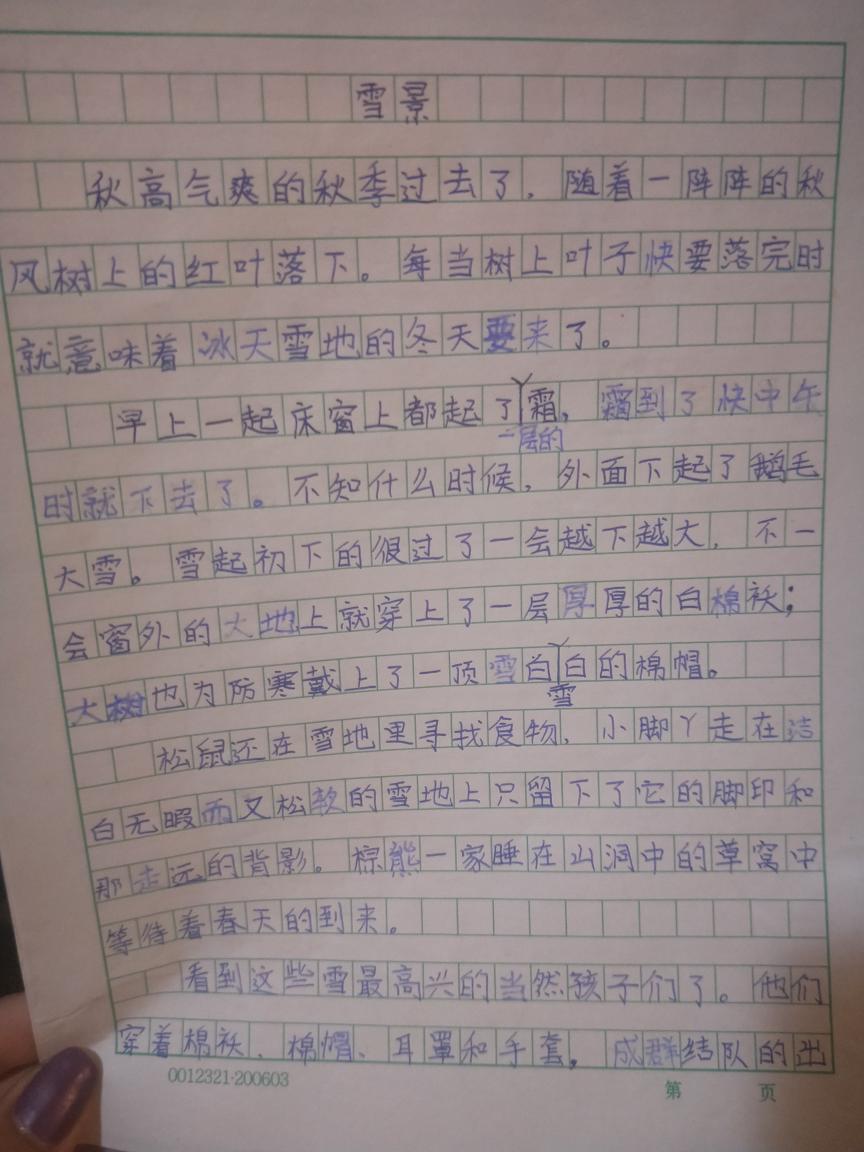 雪景
秋高气爽的秋季过去了，随着一阵阵的秋
风树上的红叶落下。每当树上叶子快要落完时
就意味着冰天雪地的冬天要来了。
早上一起床窗上都起了一层的霜，霜到了快中午
时就下去了。不知什么时候，外面下起了鹅毛
大雪。雪起初下的很过了一会越下越大，不一
会窗外的大地上就穿上了一层厚厚的白棉袄；
大树也为防寒戴上了一顶雪白雪白的棉帽。
松鼠还在雪地里寻找食物，小脚丫走在洁
白无暇而又松软的雪地上只留下了它的脚印和
那走远的背影。棕熊一家睡在山洞中的草窝中
等待着春天的到来。
看到这些雪最高兴的当然孩子们了。他们
穿着棉袄、棉帽、耳罩和手套，成群结队的出
0012321·200603
第 页